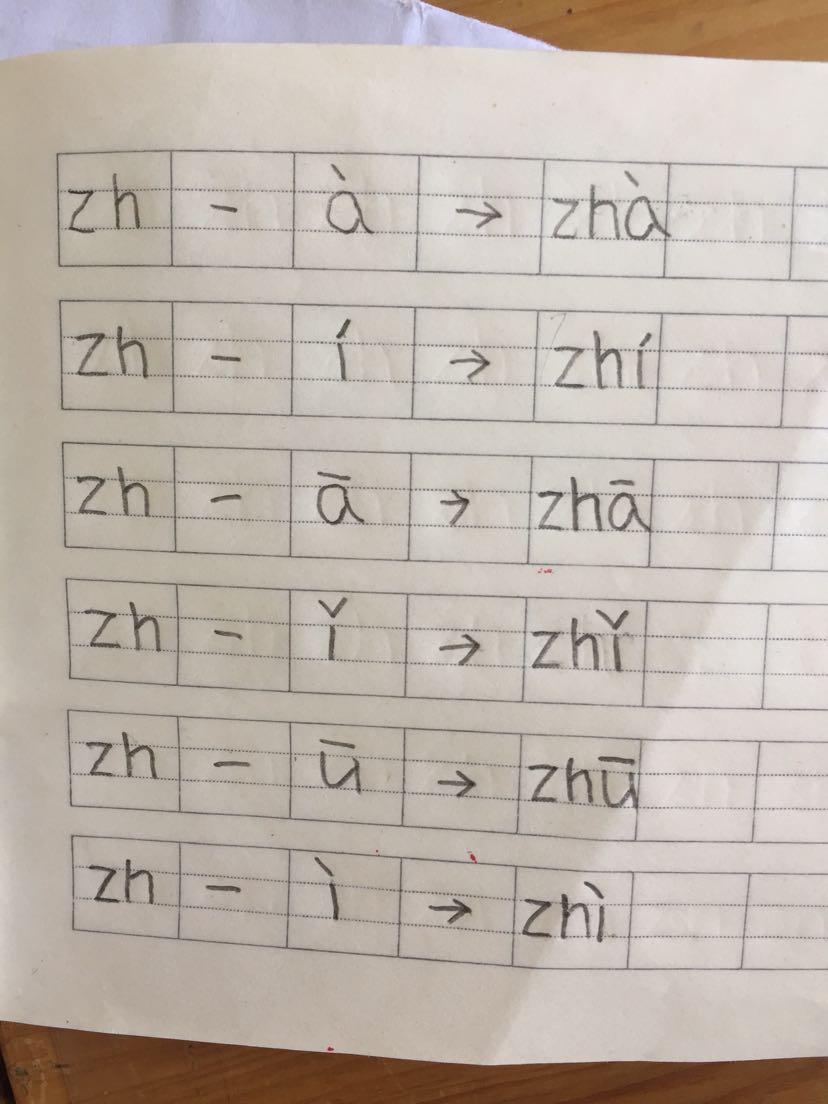 zh - à → zhà
zh - í → zhí
zh - ā → zhā
zh - ǐ → zhǐ
zh - ū → zhū
zh - ì → zhì